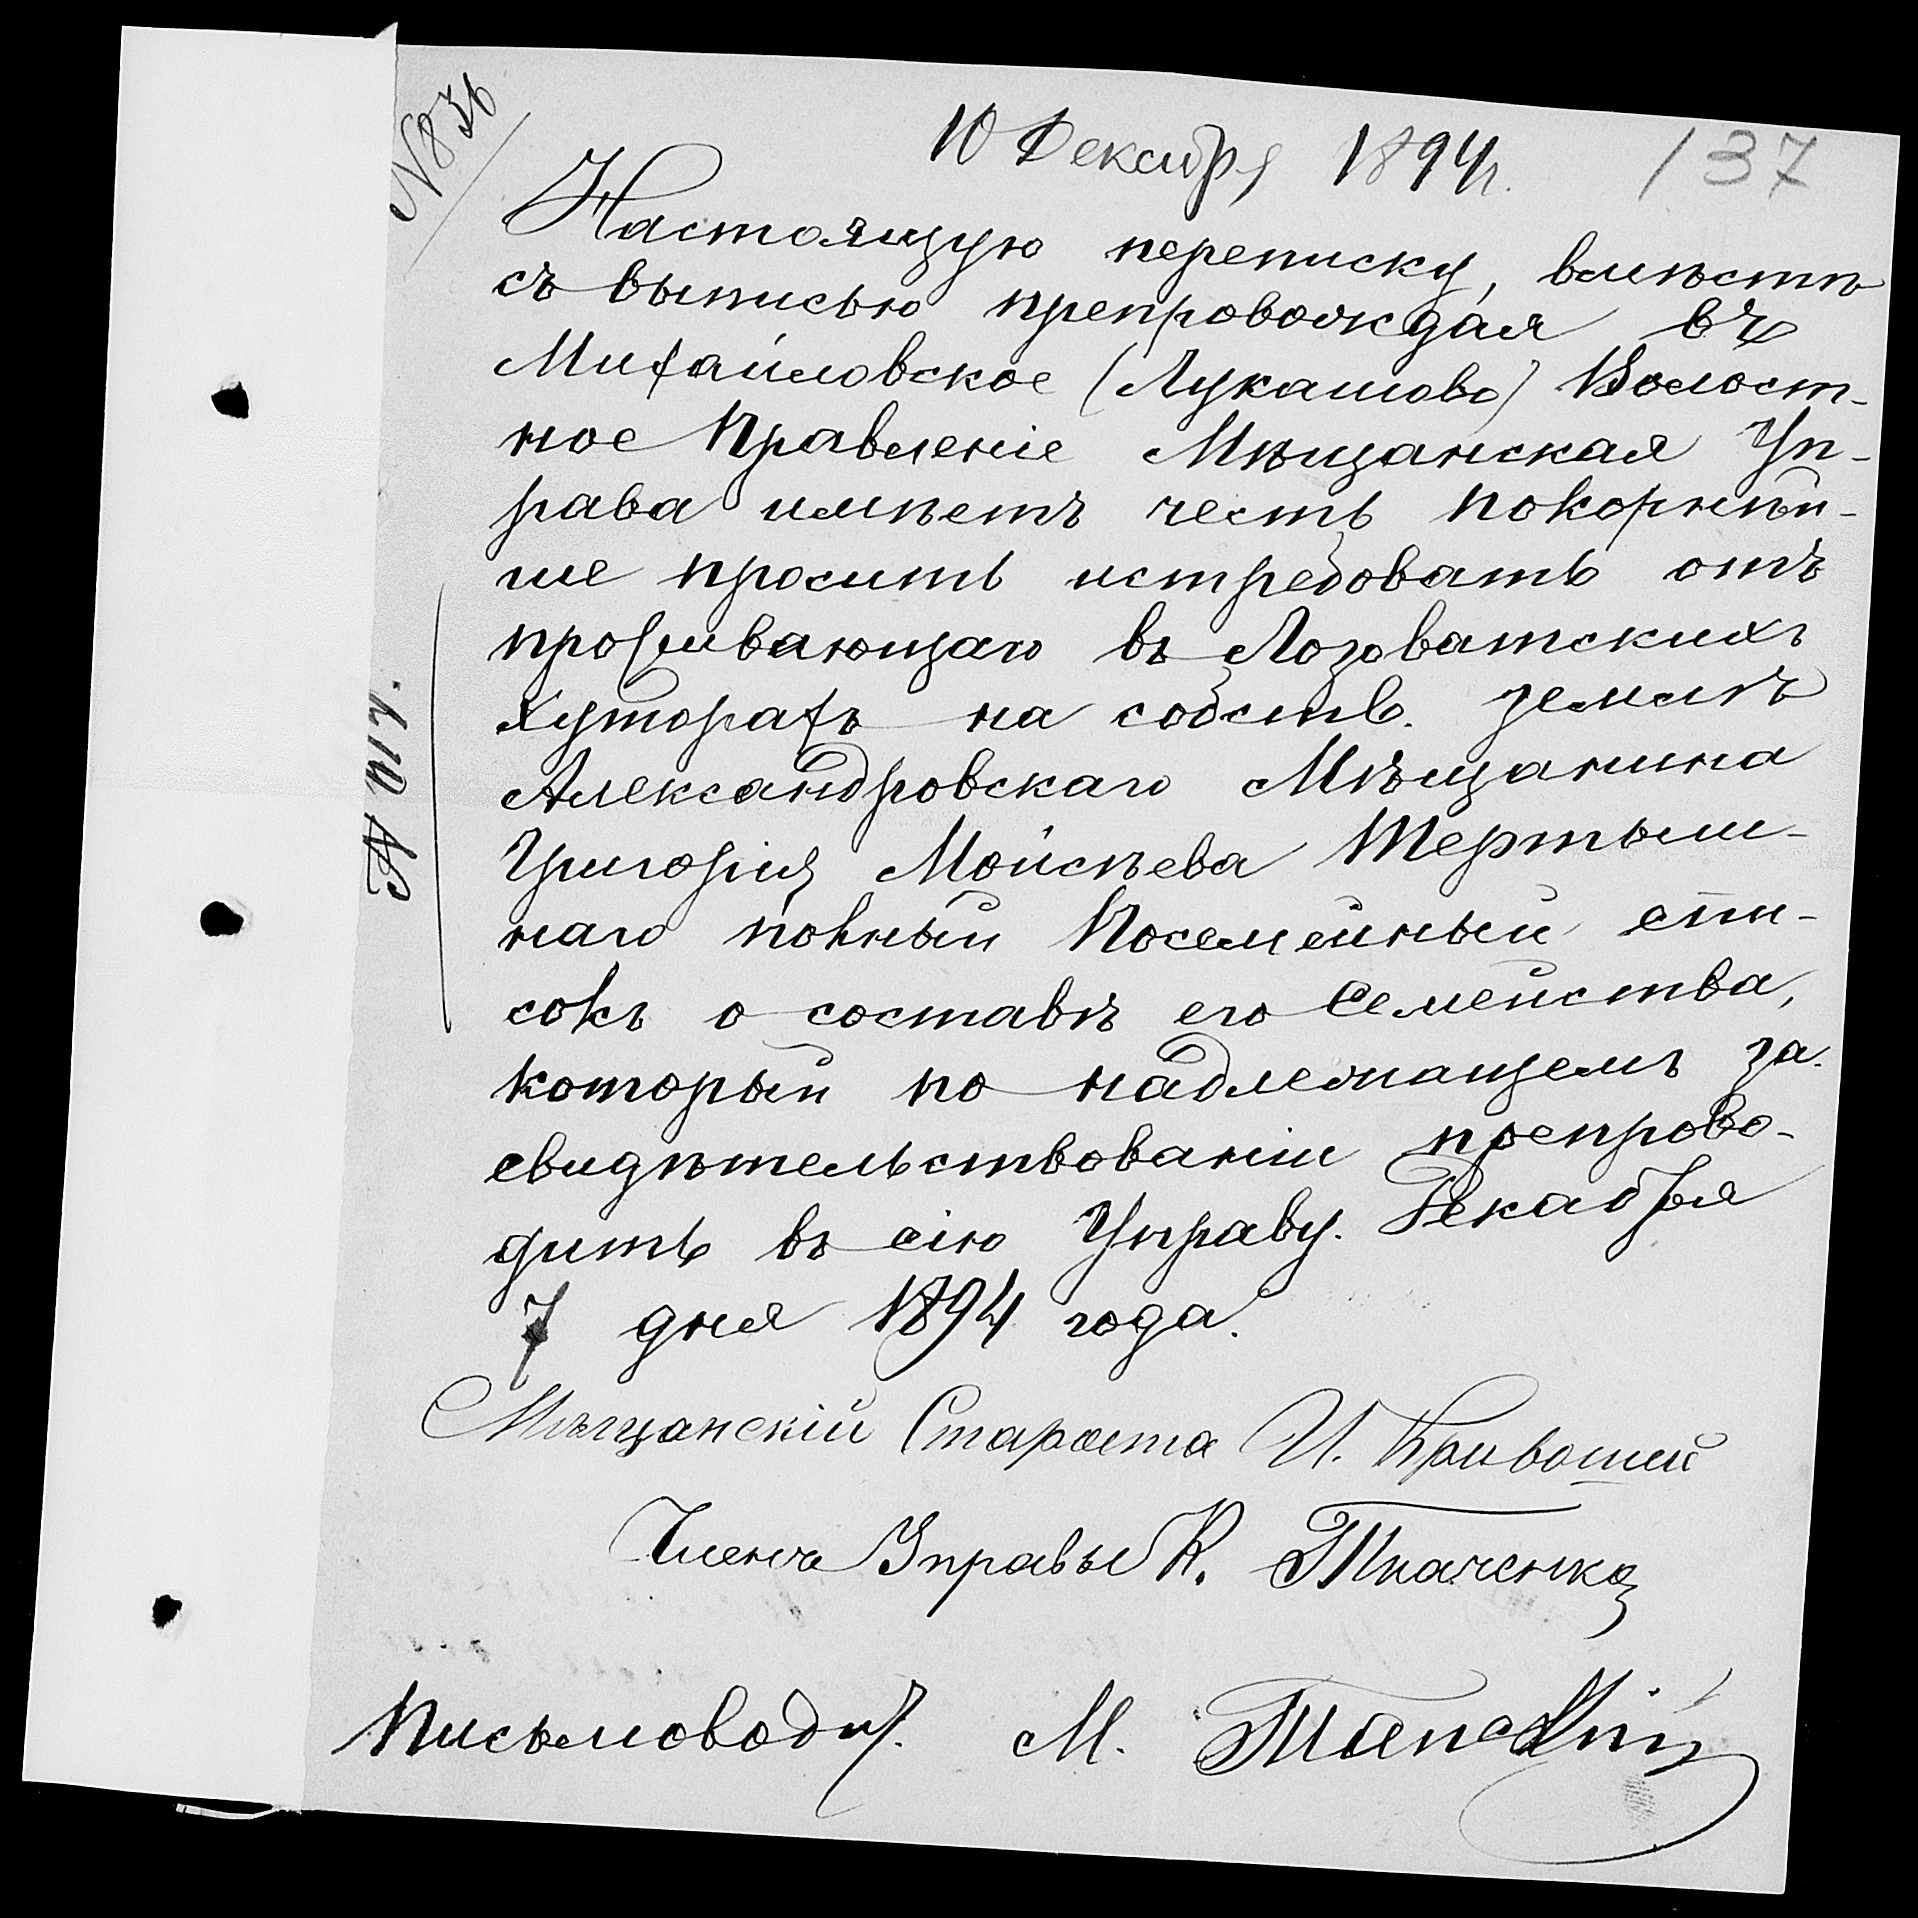 N 836
10 Декабря 1894 г.
137
Настоящую переписку, вмѣстѣ
съ выписью препровождая въ
Михайловское (Лукашово) Волост-
ное Правленіе Мѣщанская Уп-
рава имѣетъ честь покорнѣй-
ше просить истребовать отъ
проживающаго въ Лозоватскихъ
хуторахъ на собств. землѣ
Александровскаго Мѣщанина
Григорія Мойсѣева Тертыш-
наго полный посемейный спи-
сокъ о составѣ его Семейства,
который по надлежащемъ за-
свидѣтельствованіи препрово-
дить въ сію Управу. Декабря
7 дня 1894 года.
Мѣщанскій Староста И. Кривошей
Членъ Управы К. Ткаченко
Письмовод. М.